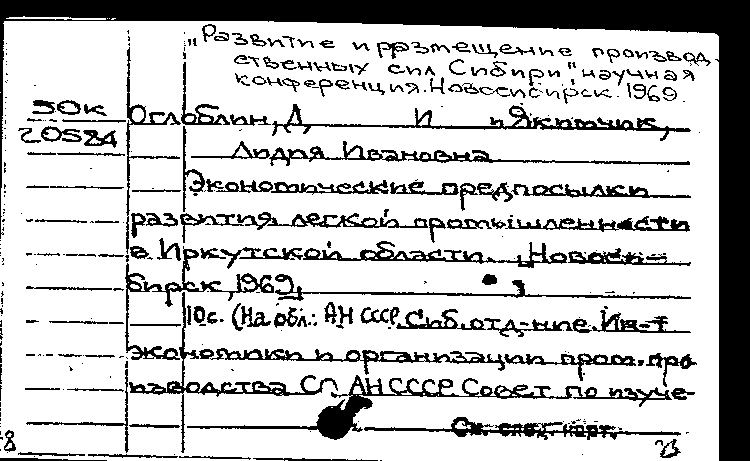 „Развитие и размещение производ-
ственных сил Сибири", научная
конференция. Новосибирск. 1969.
30К
20584
Оглоблин, Д, И и Якимчик,
Лидия Ивановна
Экономические предпосылки
развития легкой промышленности
в Иркутской области. Новоси-
бирск, 1969,
10с. (На обл.: АН СССР. Сиб. отд-ние. Ин-т
экономики и организации пром. про
изводства СО АН СССР. Совет по изуче-
См. след. карт.